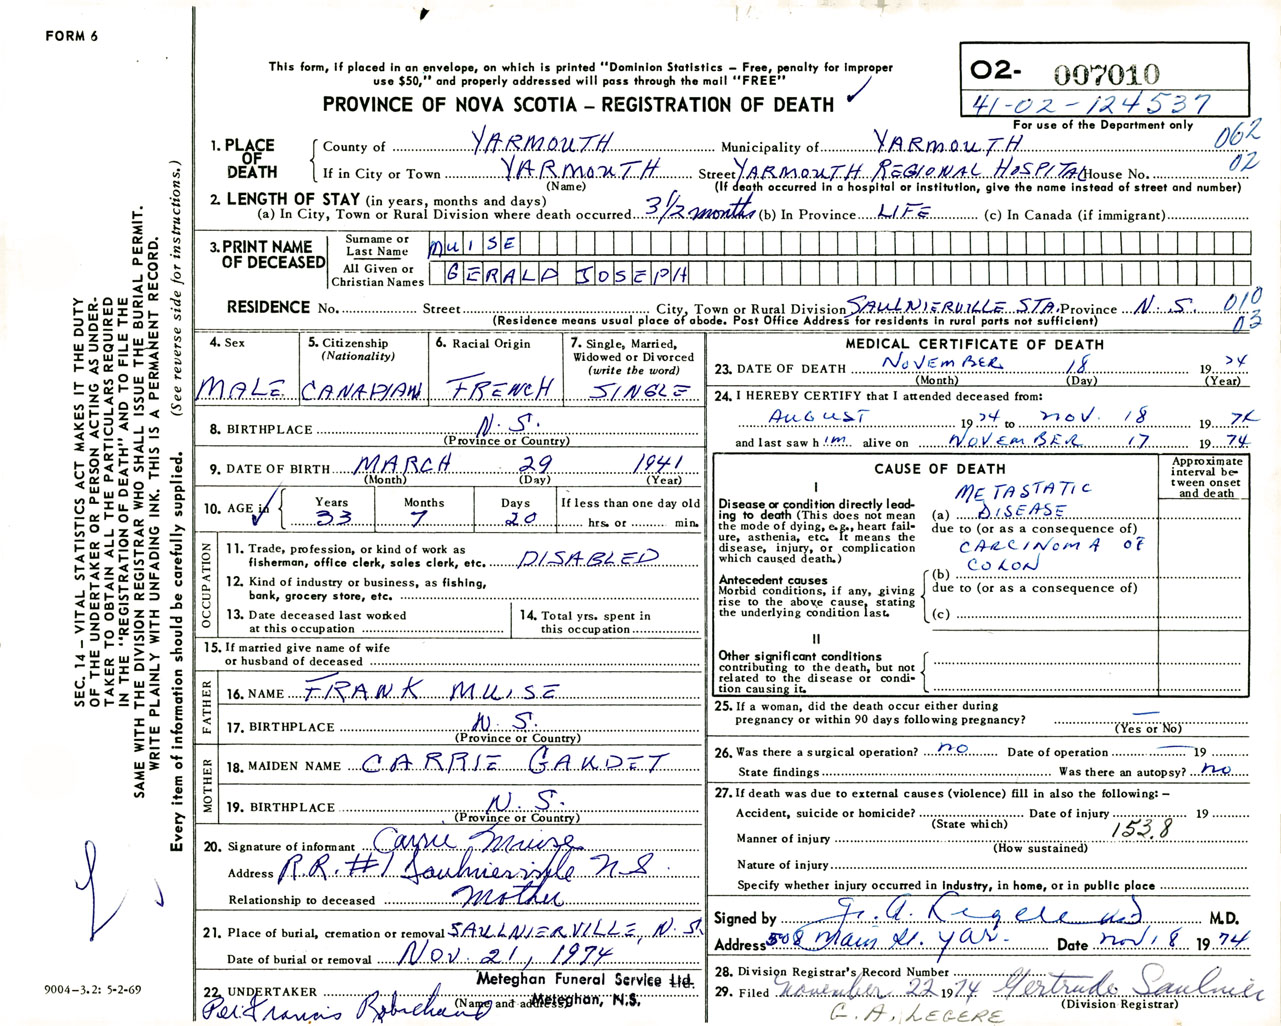 FORM 6
This form, if placed in an envelope, on which is printed "Dominion Statistics – Free, penalty for improper
use $50," and properly addressed will pass through the mail "FREE"
PROVINCE OF NOVA SCOTIA – REGISTRATION OF DEATH
O2- 007010
41-02-124537
For use of the Department only
062
02
1. PLACE OF DEATH
County of YARMOUTH Municipality of YARMOUTH
If in City or Town YARMOUTH Street YARMOUTH REGIONAL HOSPITAL House No.
(Name) (If death occurred in a hospital or institution, give the name instead of street and number)
2. LENGTH OF STAY (in years, months and days)
(a) In City, Town or Rural Division where death occurred 3 1/2 months (b) In Province LIFE (c) In Canada (if immigrant)
3. PRINT NAME OF DECEASED
Surname or Last Name MUISE
All Given or Christian Names GERALD JOSEPH
RESIDENCE No. Street City, Town or Rural Division SAULNIERVILLE STA. Province N.S. 010
03
(Residence means usual place of abode. Post Office Address for residents in rural parts not sufficient)
4. Sex
MALE
5. Citizenship
(Nationality)
CANADIAN
6. Racial Origin
FRENCH
7. Single, Married,
Widowed or Divorced
(write the word)
SINGLE
8. BIRTHPLACE N.S.
(Province or Country)
9. DATE OF BIRTH MARCH 29 1941
(Month) (Day) (Year)
10. AGE in Years Months Days If less than one day old
33 7 20 hrs. or min.
OCCUPATION
11. Trade, profession, or kind of work as
fisherman, office clerk, sales clerk, etc. DISABLED
12. Kind of industry or business, as fishing,
bank, grocery store, etc.
13. Date deceased last worked
at this occupation
14. Total yrs. spent in
this occupation
15. If married give name of wife
or husband of deceased
FATHER
16. NAME FRANK MUISE
17. BIRTHPLACE N.S.
(Province or Country)
MOTHER
18. MAIDEN NAME CARRIE GAUDET
19. BIRTHPLACE N.S.
(Province or Country)
20. Signature of informant Carrie Muise
Address R.R. #1 Saulnierville N S
Relationship to deceased Mother
21. Place of burial, cremation or removal SAULNIERVILLE, N.S.
Date of burial or removal Nov 21, 1974
Meteghan Funeral Service Ltd.
22. UNDERTAKER (Name and address) Meteghan, N.S.
Per Francis Robichaud
MEDICAL CERTIFICATE OF DEATH
23. DATE OF DEATH NOVEMBER 18 1974
(Month) (Day) (Year)
24. I HEREBY CERTIFY that I attended deceased from:
AUGUST 1974 to NOV. 18 1974
and last saw him alive on NOVEMBER 17 1974
CAUSE OF DEATH
Approximate
interval be-
tween onset
and death
I
Disease or condition directly lead-
ing to death (This does not mean
the mode of dying, e.g., heart fail-
ure, asthenia, etc. It means the
disease, injury, or complication
which caused death.)
METASTATIC
(a) DISEASE
due to (or as a consequence of)
CARCINOMA OF
COLON
Antecedent causes
Morbid conditions, if any, giving
rise to the above cause, stating
the underlying condition last.
(b)
due to (or as a consequence of)
(c)
II
Other significant conditions
contributing to the death, but not
related to the disease or condi-
tion causing it.
25. If a woman, did the death occur either during
pregnancy or within 90 days following pregnancy? —
(Yes or No)
26. Was there a surgical operation? no Date of operation — 19
State findings Was there an autopsy? no
27. If death was due to external causes (violence) fill in also the following: –
Accident, suicide or homicide? Date of injury 19
(State which) 153.8
Manner of injury
(How sustained)
Nature of injury
Specify whether injury occurred in Industry, in home, or in public place
Signed by G. A. Legere M.D.
Address 508 Main St. Yar. Date Nov 18 1974
28. Division Registrar's Record Number
29. Filed November 22 1974 Gertrude Saulnier
(Division Registrar)
G. A. LEGERE
SEC. 14 – VITAL STATISTICS ACT MAKES IT THE DUTY
OF THE UNDERTAKER OR PERSON ACTING AS UNDER-
TAKER TO OBTAIN ALL THE PARTICULARS REQUIRED
IN THE "REGISTRATION OF DEATH" AND TO FILE THE
SAME WITH THE DIVISION REGISTRAR WHO SHALL ISSUE THE BURIAL PERMIT.
WRITE PLAINLY WITH UNFADING INK. THIS IS A PERMANENT RECORD.
Every item of information should be carefully supplied. (See reverse side for instructions.)
9004-3.2: 5-2-69